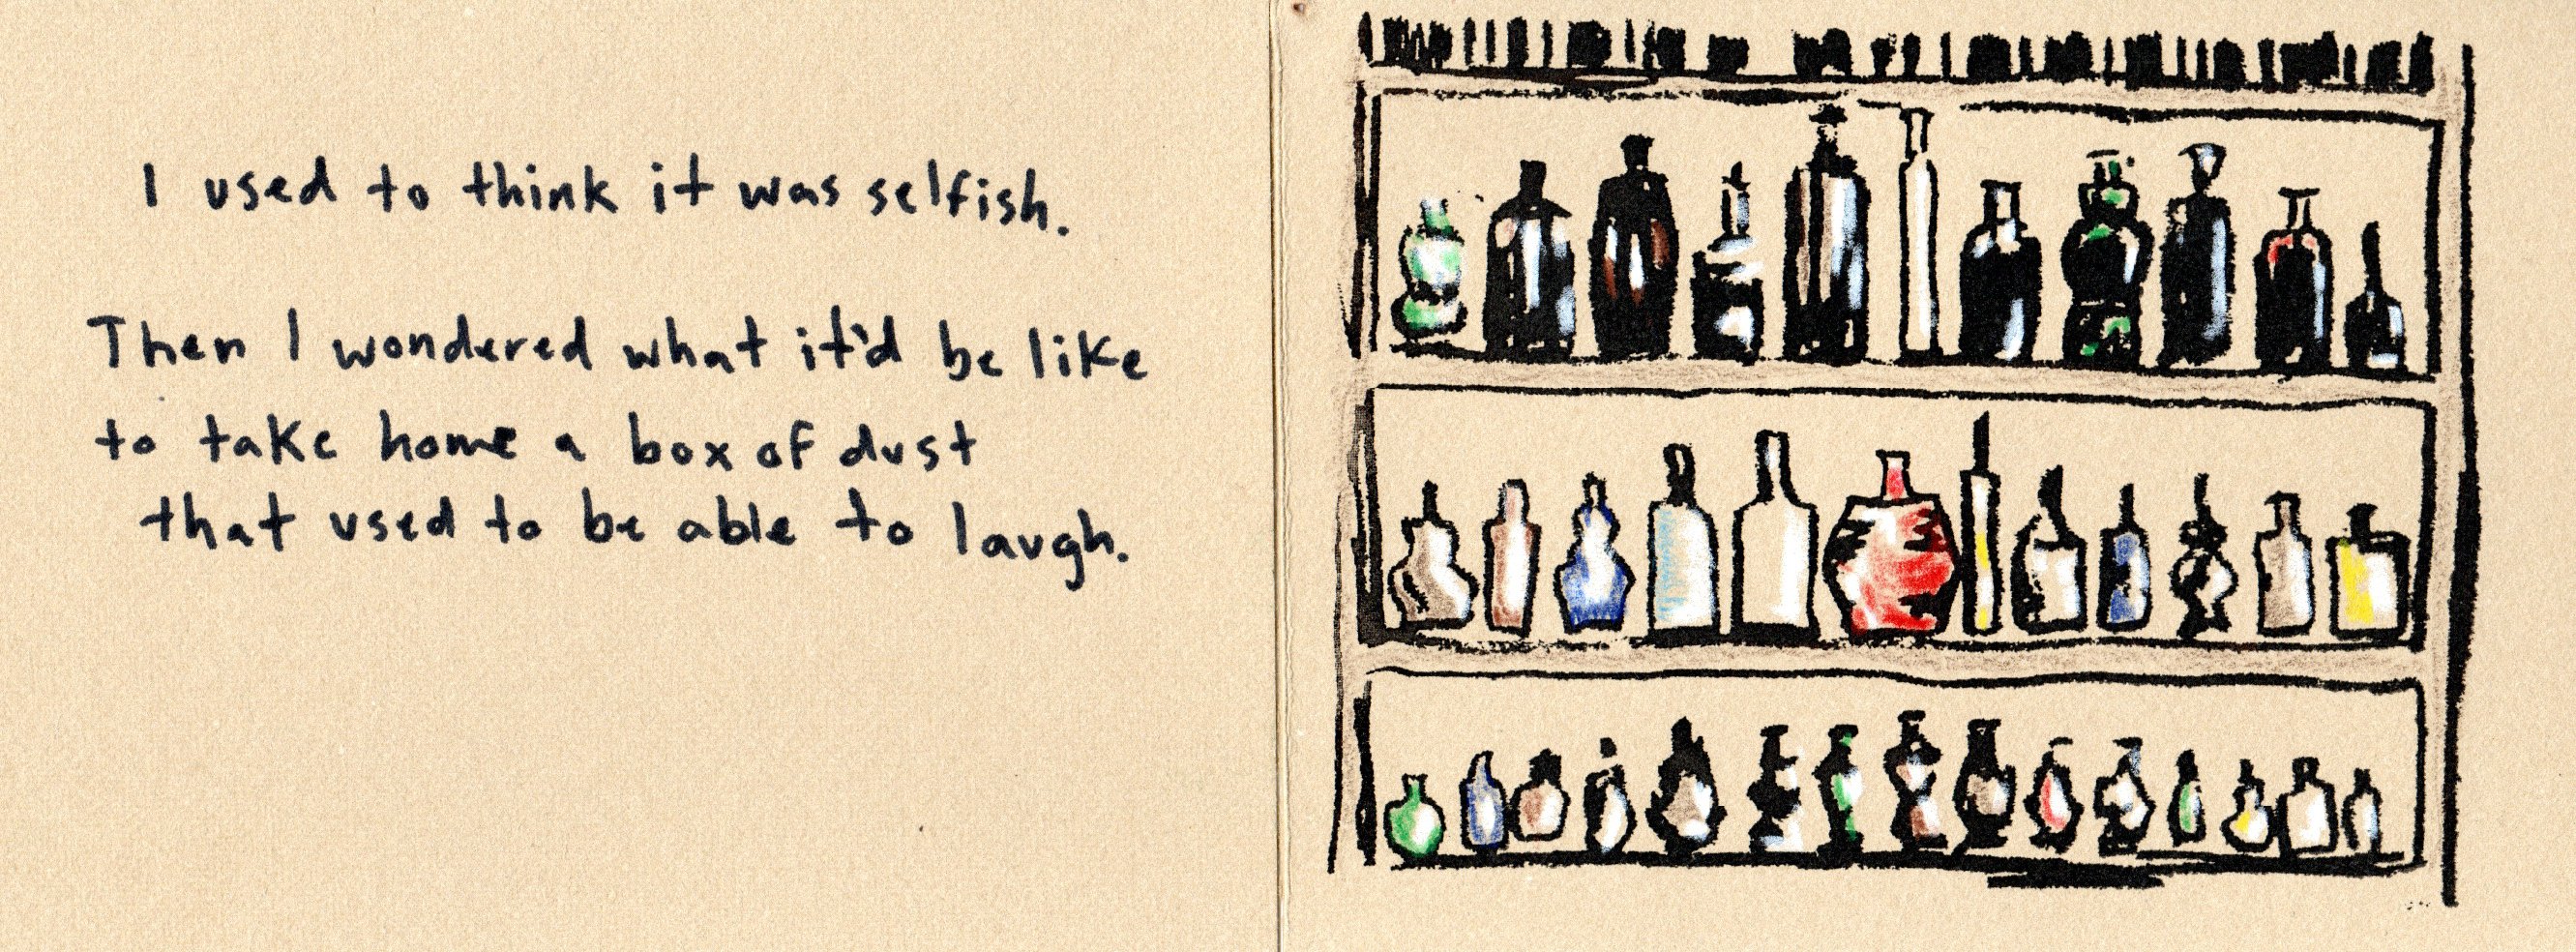 I used to think it was selfish.
Then I wondered what it'd be like
to take home a box of dust
that used to be able to laugh.